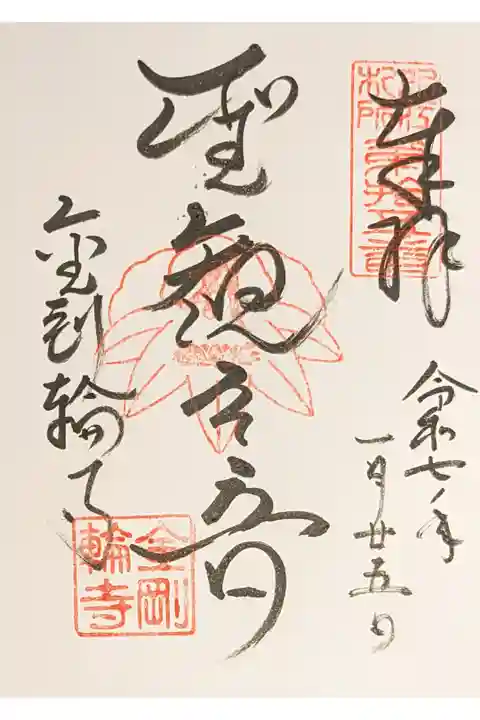 奉拝
令和七年
一月廿五日
聖観世音
金剛輪寺
金剛
輪寺